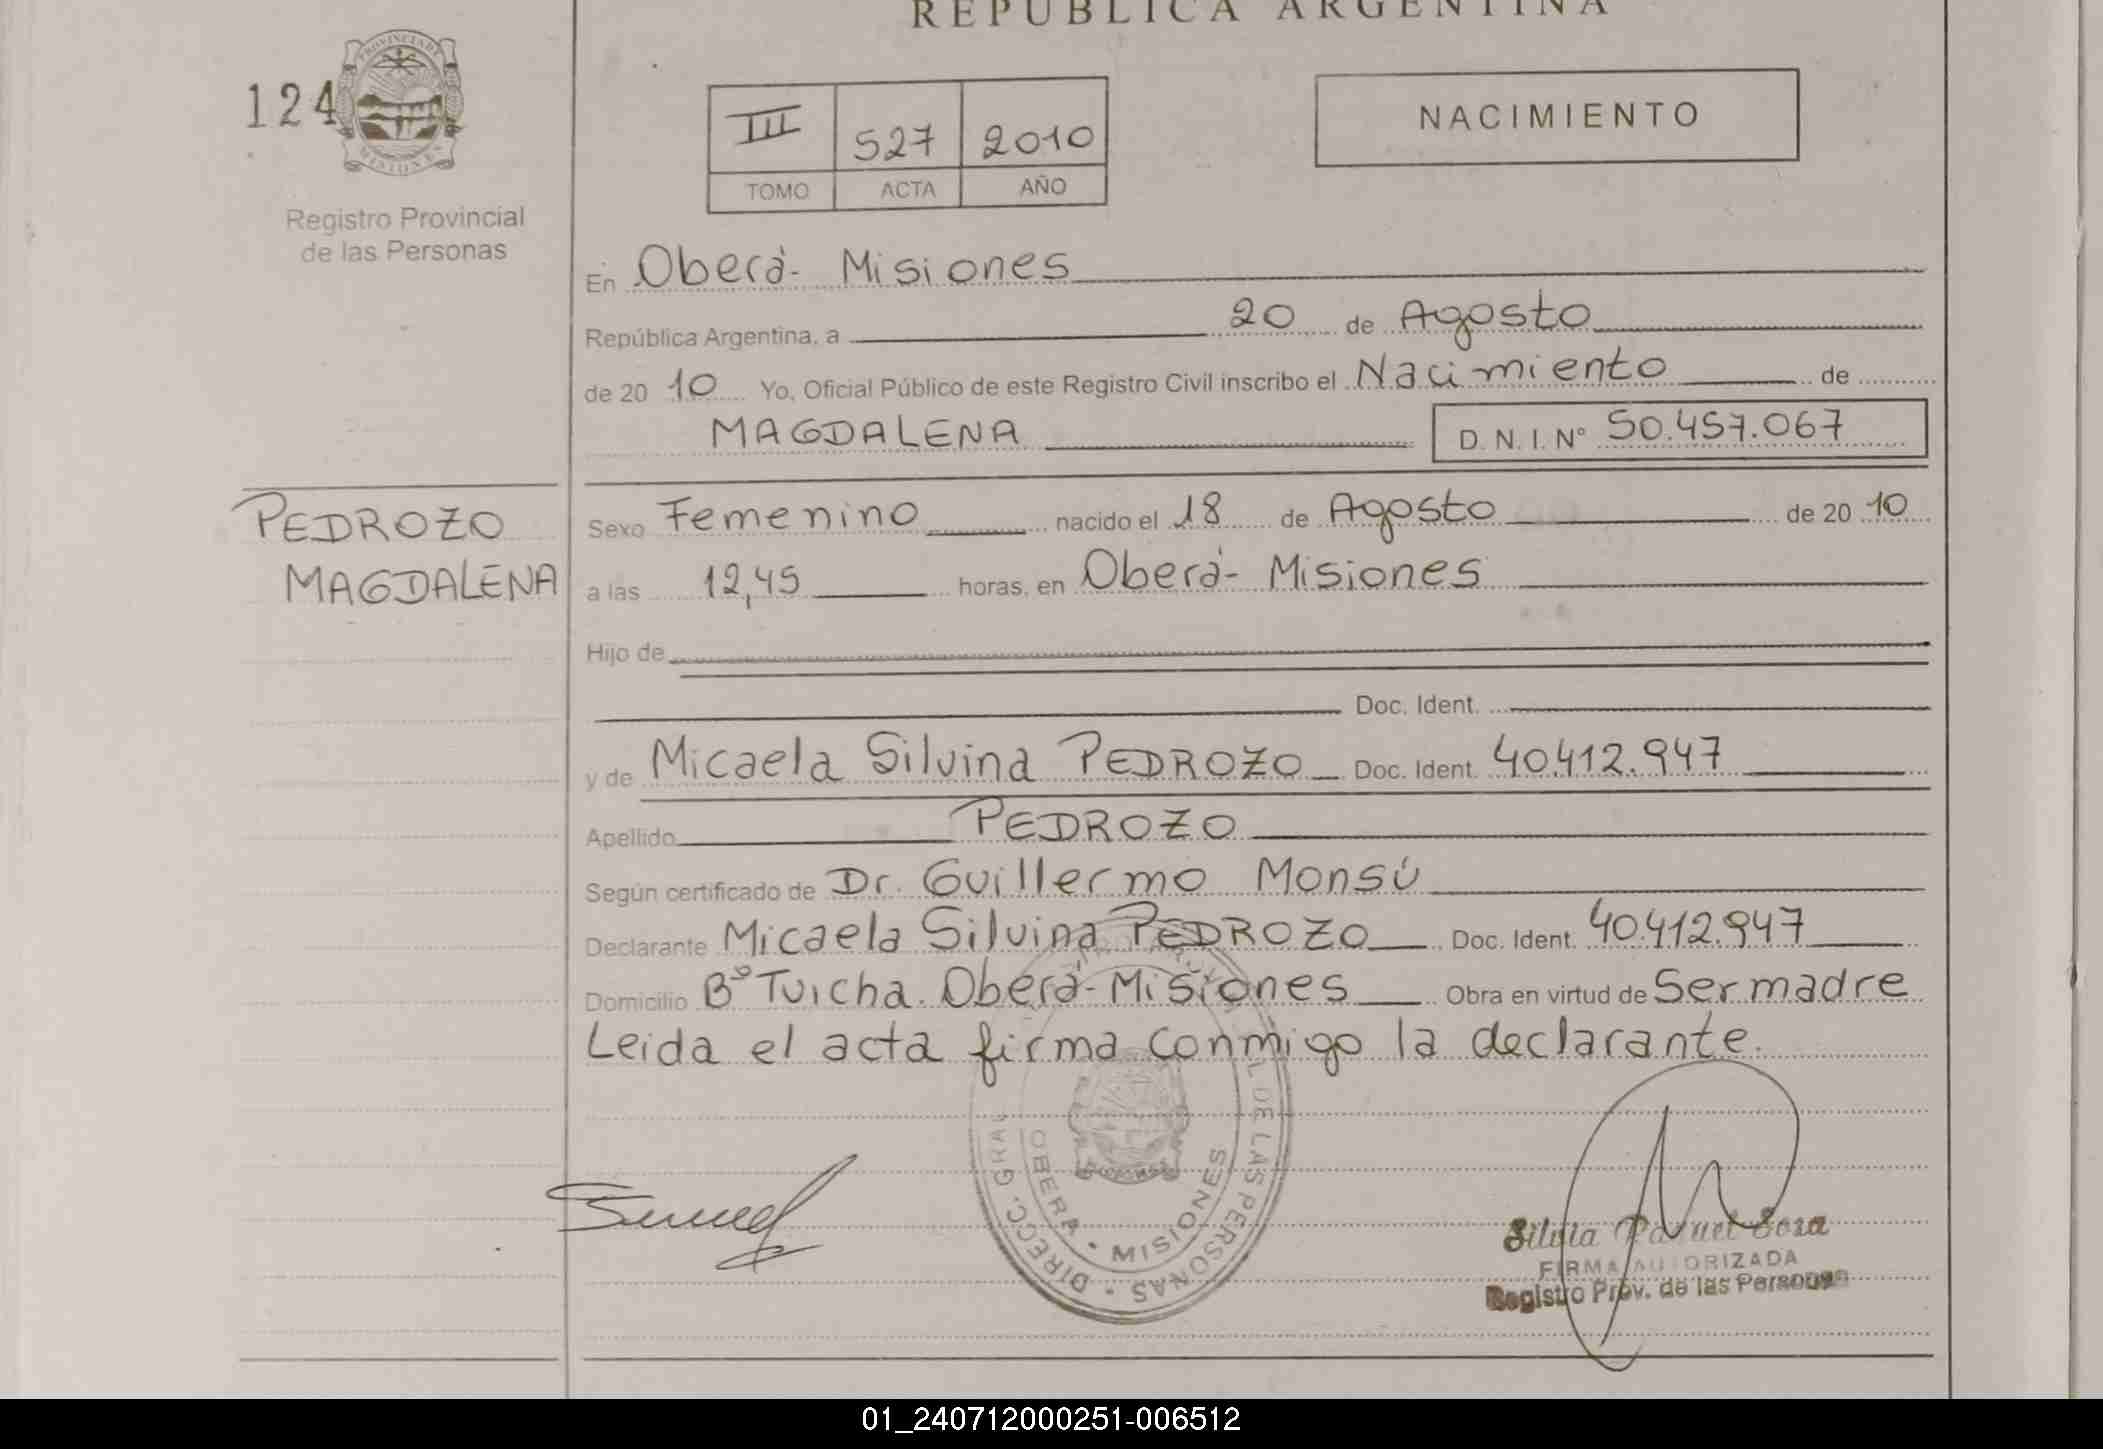 REPUBLICA ARGENTINA
124
PROVINCIA DE MISIONES
Registro Provincial
de las Personas
III 527 2010
TOMO ACTA AÑO
NACIMIENTO
En Oberá- Misiones
República Argentina, a 20 de Agosto
de 20 10 Yo, Oficial Público de este Registro Civil inscribo el Nacimiento de
MAGDALENA D. N. I. Nº 50.457.067
PEDROZO
MAGDALENA
Sexo Femenino nacido el 18 de Agosto de 20 10
a las 12,45 horas, en Oberá- Misiones
Hijo de
Doc. Ident.
y de Micaela Silvina PEDROZO Doc. Ident. 40.412.947
Apellido PEDROZO
Según certificado de Dr. Guillermo Monsú
Declarante Micaela Silvina PEDROZO Doc. Ident. 40.412.947
Domicilio Bº Tuicha. Oberá- Misiones Obra en virtud de Ser madre
Leida el acta firma conmigo la declarante.
DIRECC. GRAL DE LAS PERSONAS
OBERA - MISIONES
Silvia Raquel Sosa
FIRMA AUTORIZADA
Registro Prov. de las Personas
01_240712000251-006512